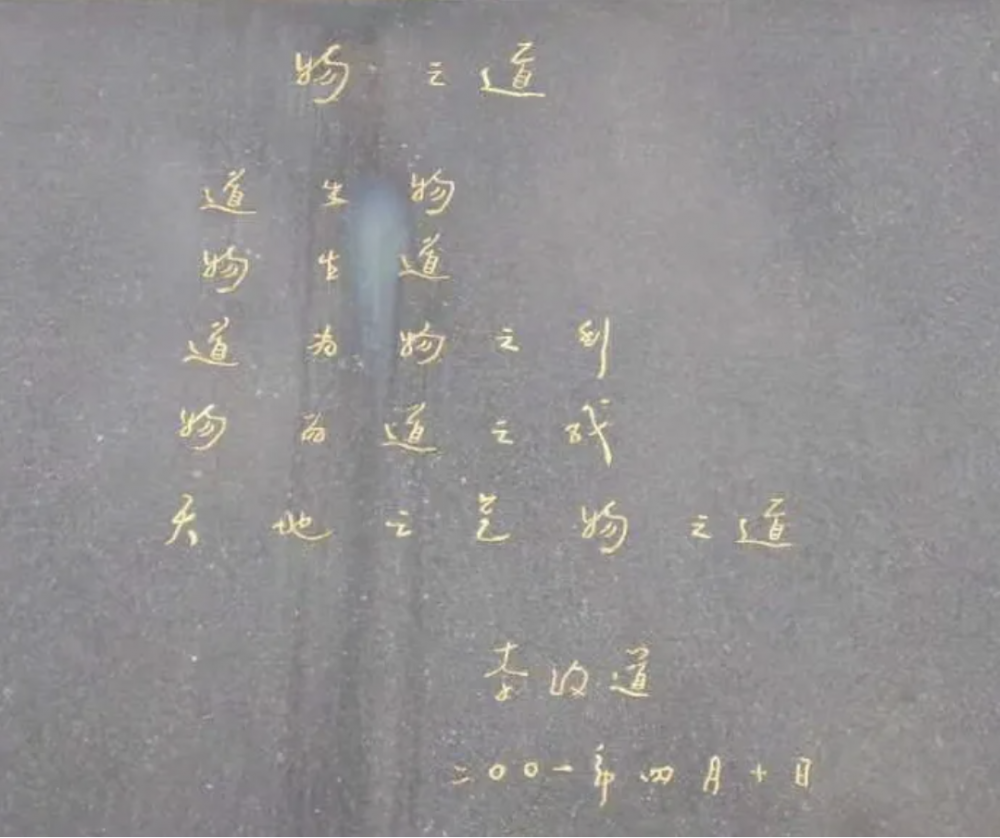 物之道
道生物
物生道
道为物之行
物为道之成
天地之艺物之道
李政道
二〇〇一年四月十日